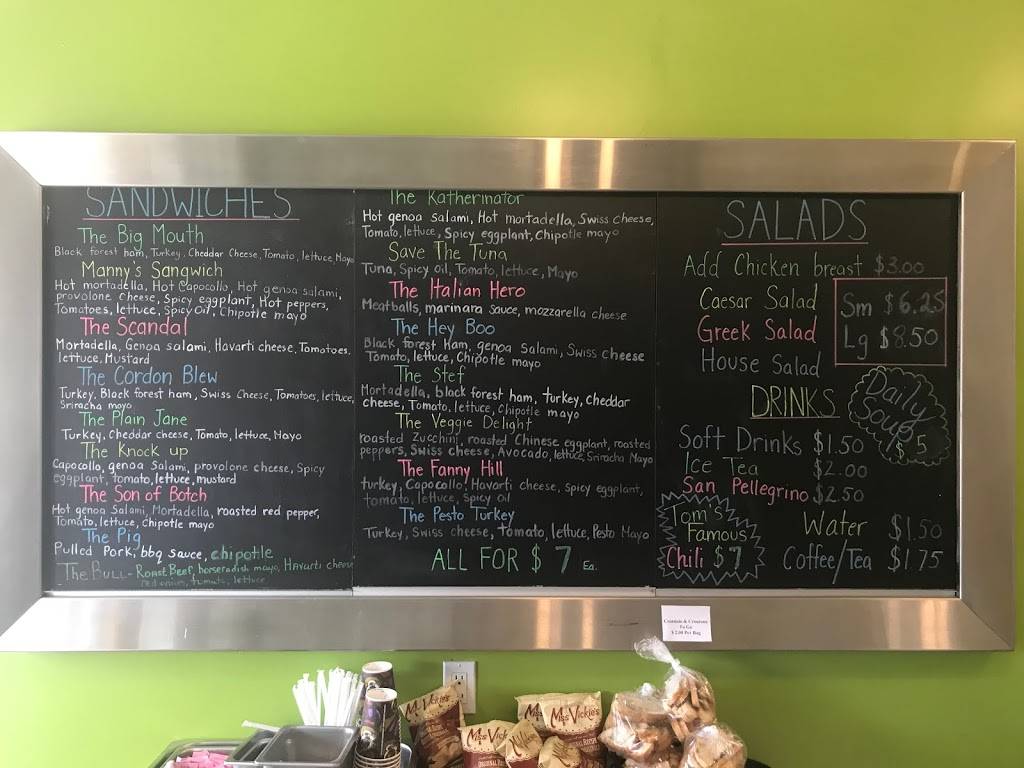 SANDWICHES
The Big Mouth
Black forest ham, Turkey, Cheddar Cheese, Tomato, lettuce, Mayo
Manny's Sangwich
Hot mortadella, Hot Capocollo, Hot genoa salami,
provolone cheese, Spicy eggplant, Hot peppers,
Tomatoes, lettuce, Spicy Oil, Chipotle mayo
The Scandal
Mortadella, Genoa salami, Havarti cheese, Tomatoes,
lettuce, Mustard
The Cordon Blew
Turkey, Black forest ham, Swiss Cheese, Tomatoes, lettuce,
Sriracha mayo
The Plain Jane
Turkey, Cheddar cheese, Tomato, lettuce, Mayo
The Knock up
Capocollo, genoa Salami, provolone cheese, Spicy
eggplant, tomato, lettuce, mustard
The Son of Botch
Hot genoa Salami, Mortadella, roasted red pepper,
Tomato, lettuce, chipotle mayo
The Pig
Pulled Pork, bbq sauce, chipotle
The Bull- Roast Beef, horseradish mayo, Havarti cheese
red onion, tomato, lettuce
The Katherinator
Hot genoa salami, Hot mortadella, Swiss cheese,
Tomato, lettuce, Spicy eggplant, Chipotle mayo
Save The Tuna
Tuna, Spicy oil, Tomato, lettuce, Mayo
The Italian Hero
Meatballs, marinara sauce, mozzarella cheese
The Hey Boo
Black forest ham, genoa Salami, Swiss cheese
Tomato, lettuce, Chipotle mayo
The Stef
Mortadella, black forest ham, turkey, cheddar
cheese, Tomato, lettuce, chipotle mayo
The Veggie Delight
roasted Zucchini, roasted Chinese eggplant, roasted
peppers, Swiss cheese, Avocado, lettuce, Sriracha Mayo
The Fanny Hill
turkey, Capocollo, Havarti cheese, spicy eggplant,
tomato, lettuce, Spicy oil
The Pesto Turkey
Turkey, Swiss cheese, Tomato, lettuce, Pesto Mayo
ALL FOR $ 7 Ea.
SALADS
Add Chicken breast $3.00
Caesar Salad
Greek Salad
House Salad
Sm $6.25
Lg $8.50
DRINKS
Daily
Soup
$5
Soft Drinks $1.50
Ice Tea $2.00
San Pellegrino $2.50
Water $1.50
Coffee/Tea $1.75
Tom's
Famous
Chili $7
Crostinis & Croutons
To Go
$2.00 Per Bag
Miss Vickie's
Miss Vickie's